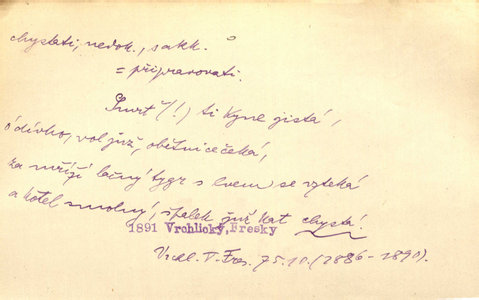 chystati, nedok., s akk.
= připravovati.
Smrt (!) ti kyne jistá,
ó dívko, vol již, obětnice čeká,
za mříží lačný tygr s lvem se vzteká
a kotel smolný, špalek již kat chystá.
1891 Vrchlický, Fresky
Vrchl. V. Fres. 75.10. (1886-1890).